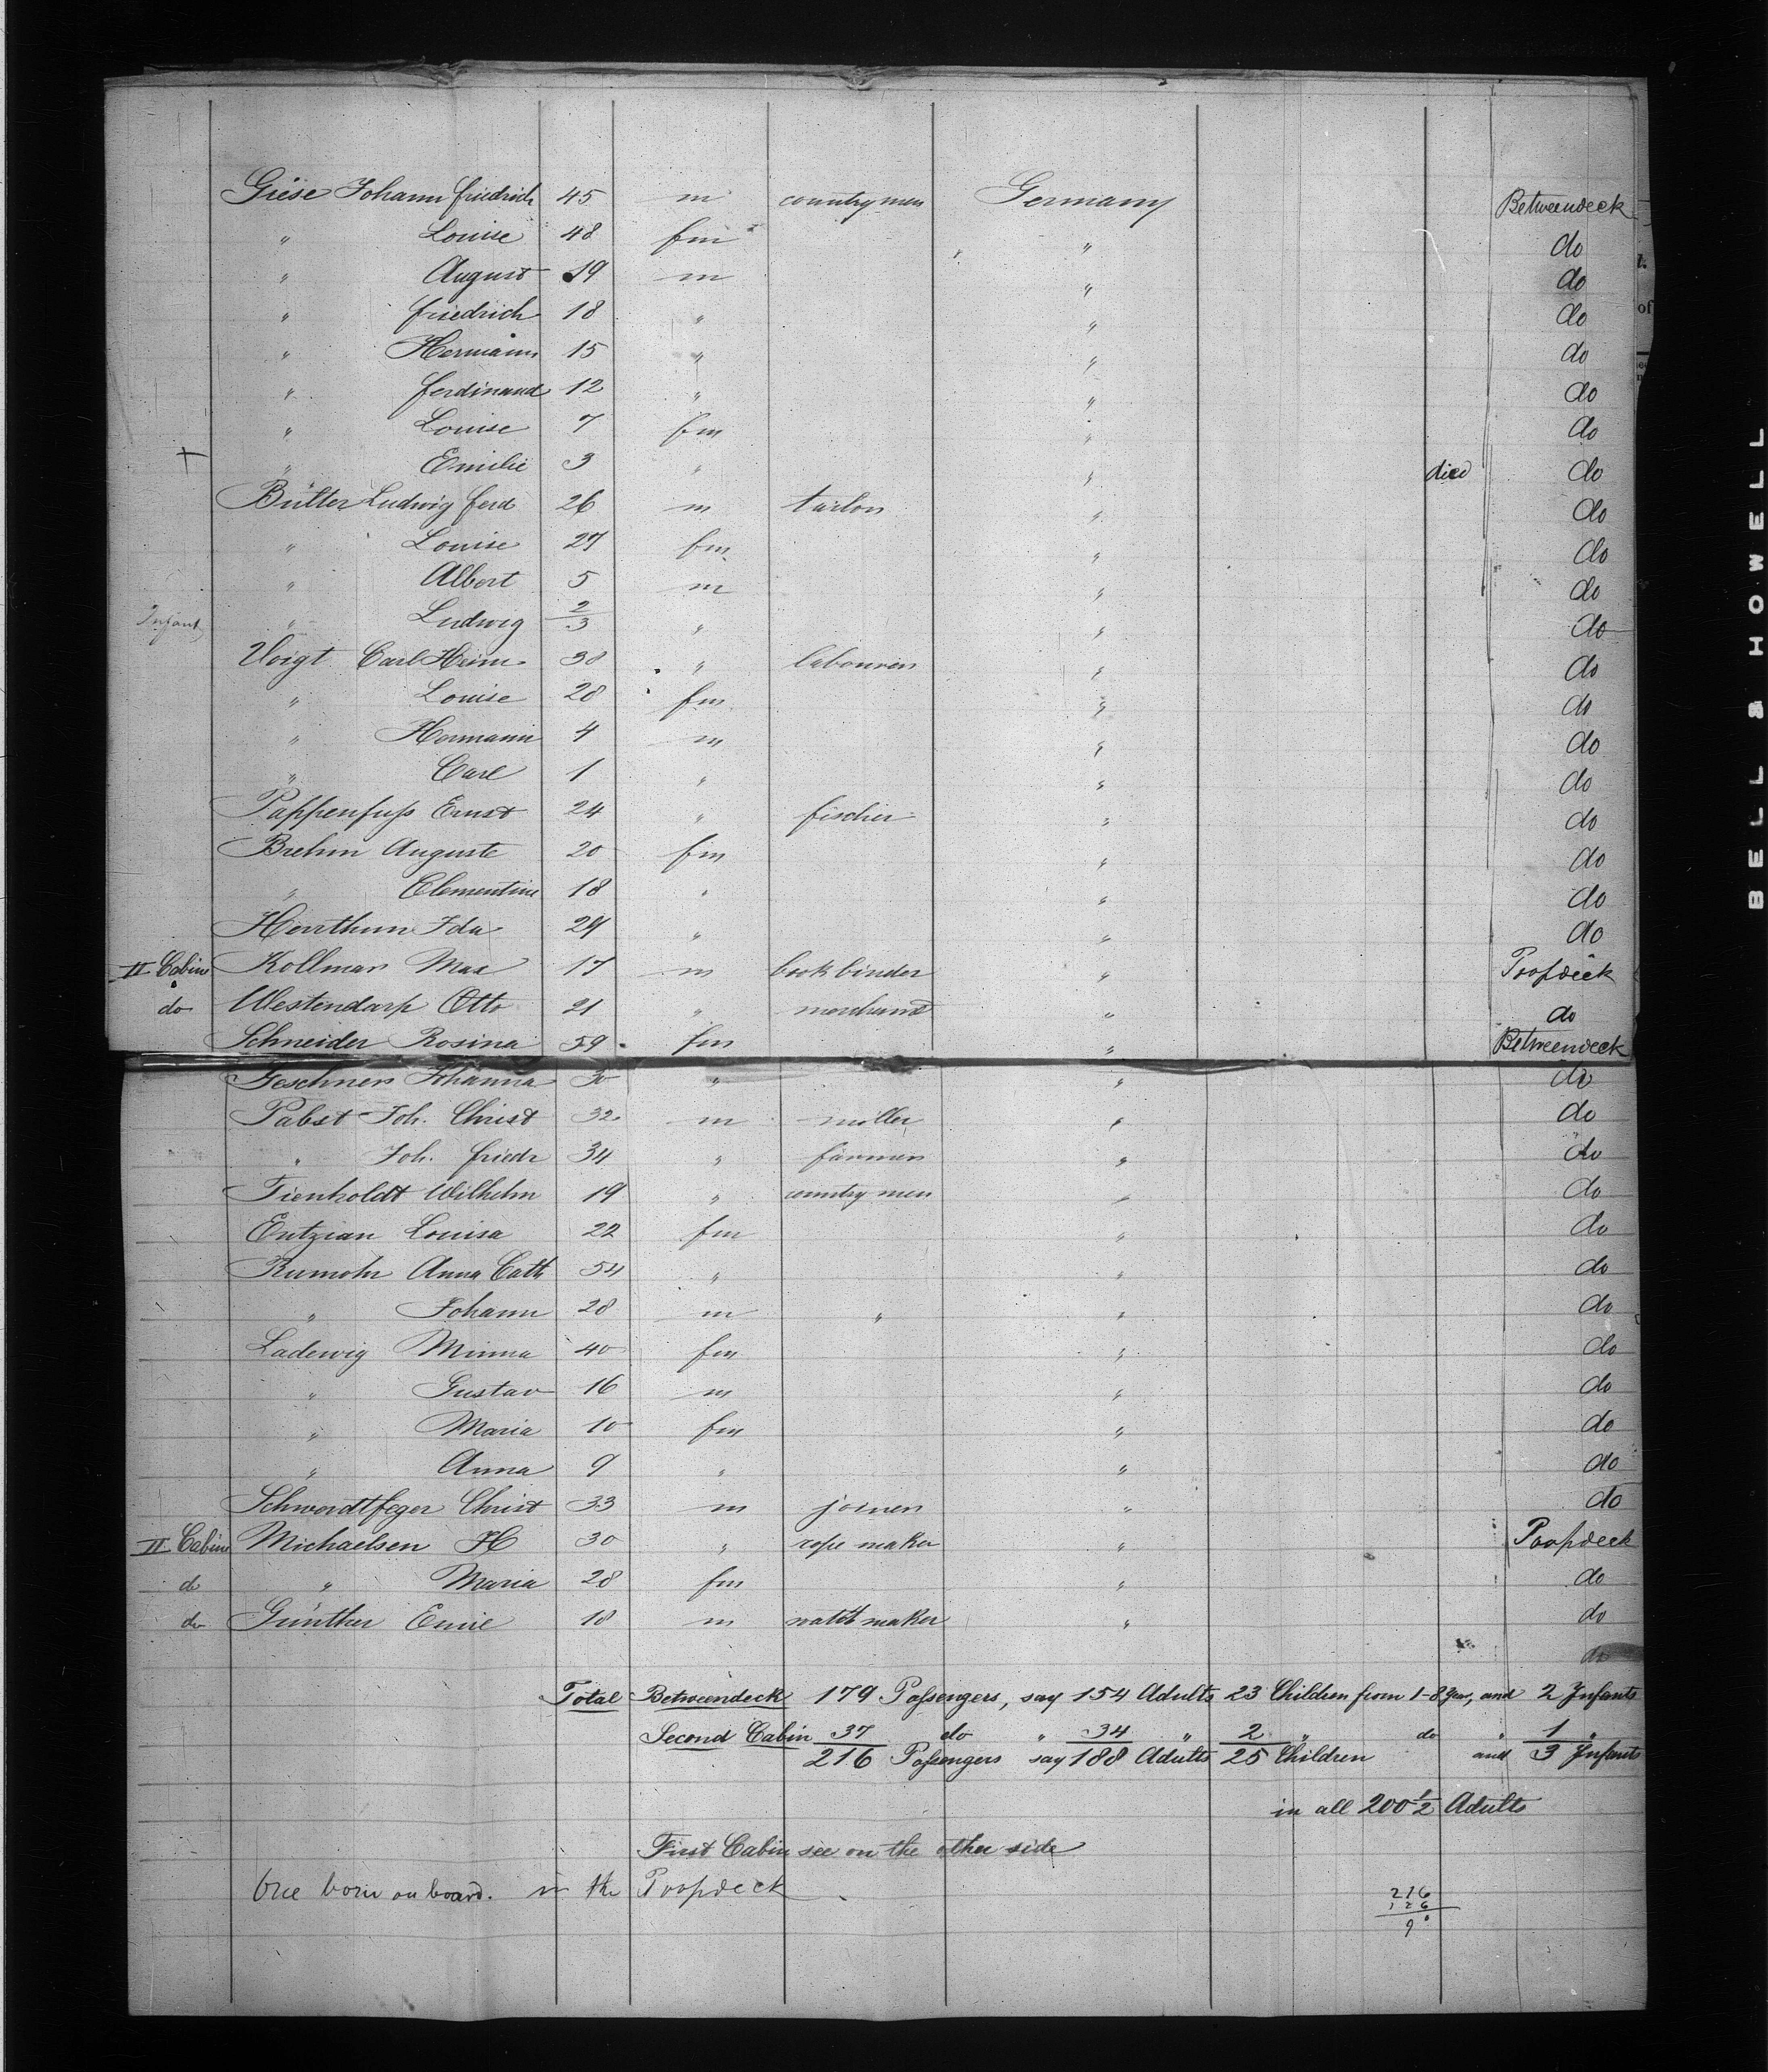 Giese Johann friedrich 45 m countrymen Germany Betweendeck
" Louise 48 fm " do
" August 19 m " do
" friedrich 18 " " do
" Hermann 15 " " do
" ferdinand 12 " " do
" Louise 7 fm " do
+ " Emilie 3 " " died do
Bütter Ludwig ferd 26 m tailon " do
" Louise 27 fm " do
" Albert 5 m " do
Infant " Ludwig 2/3 " " do
Voigt Carl Heinr 38 " labourers " do
" Louise 28 fm " do
" Hermann 4 m " do
" Carl 1 " " do
Pappenfuss Ernst 24 " fischer " do
Brehm Auguste 20 fm " do
" Clementine 18 " " do
Ida 29 " " do
II Cabine Kollman Max 17 m bookbinder " Poopdeck
do Westendarp Otto 21 " merchand " do
Schneider Rosina 59 fm " Betweendeck
Johanna 30 " " do
Pabst Joh. Christ 32 m miller " do
" Joh. friedr 34 " farmer " do
Tienholdt Wilhelm 19 " country men " do
Entzian Louisa 22 fm " do
Rumohr Anna Cath 54 " " do
" Johann 28 m " " do
Ladewig Minna 40 fm " do
" Gustav 16 m " do
" Maria 10 fm " do
" Anna 9 " " do
Schwerdtfeger Christ 33 m joiner " do
II Cabine Michaelsen H 30 " rope maker " Poopdeck
do " Maria 28 fm " do
do Günther Emil 18 m watch maker " do
do
Total Betweendeck 179 Passengers, say 154 Adults 23 Children from 1-8 Year, and 2 Infants
Second Cabin 37 do " 34 " 2 " do " 1 "
216 Passengers say 188 Adults 25 Children and 3 Infants
in all 200 1/2 Adults
First Cabin see on the other side
One born on board. in the Poopdeck
216
126
90
BELL & HOWELL